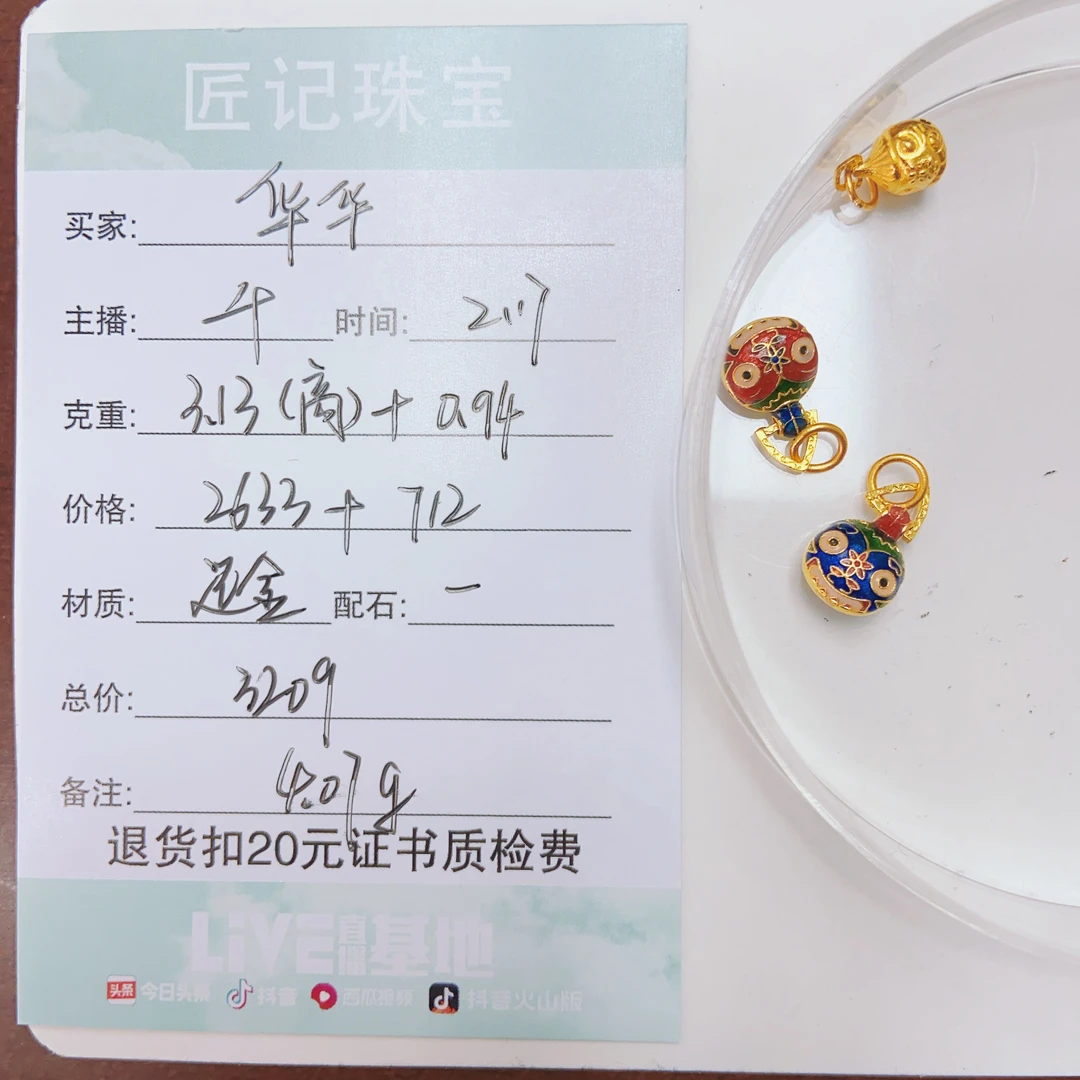 匠记珠宝
买家: 华华
主播: 牛 时间: 2.17
克重: 3.13(商)+0.94
价格: 2633+712
材质: 足金 配石: 一
总价: 3209
备注: 4.07g
退货扣20元证书质检费
LiVE直播基地
头条 今日头条 抖音 西瓜视频 抖音火山版